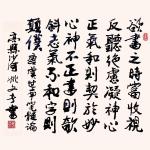 欲書之時當收視
反聽絕慮凝神心
正氣和則契於妙
心神不正書則欹
斜志氣不和字則
顛仆 虞世南筆髓論